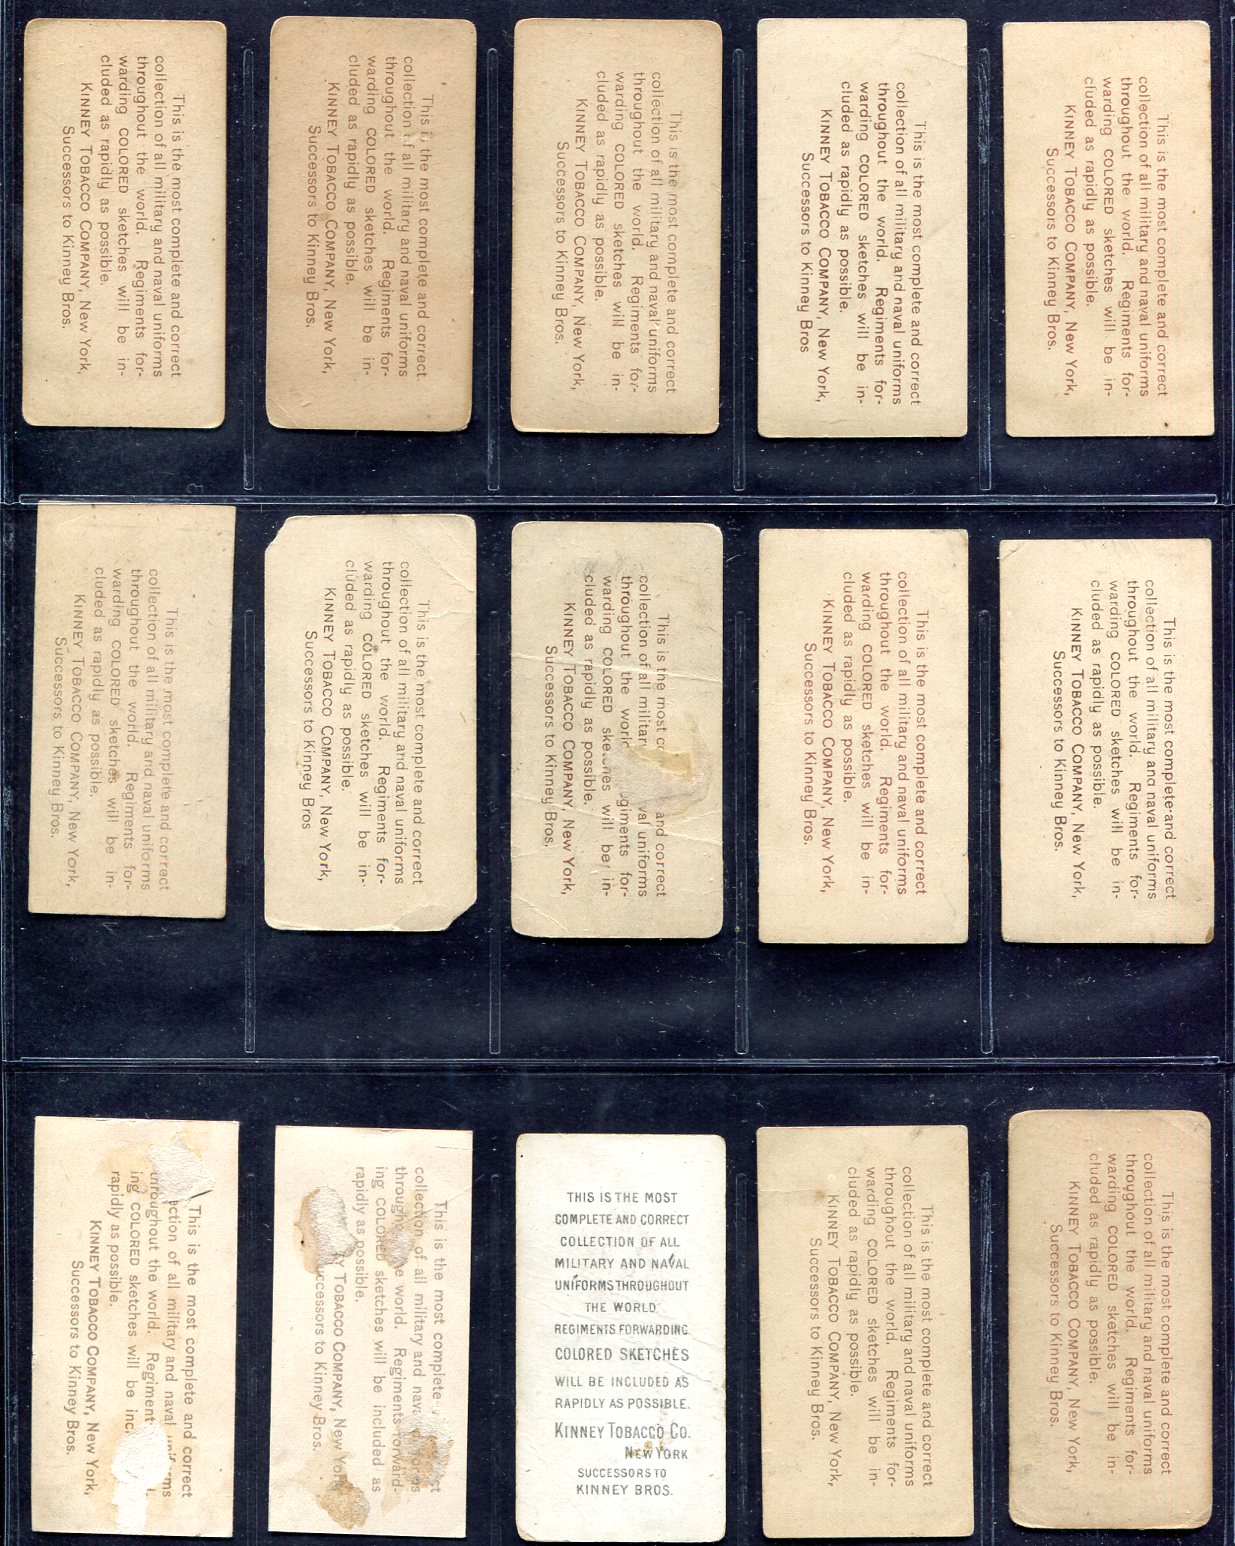 This is the most complete and correct
collection of all military and naval uniforms
throughout the world. Regiments for-
warding COLORED sketches will be in-
cluded as rapidly as possible.
KINNEY TOBACCO COMPANY, New York,
Successors to Kinney Bros.
This is the most complete and correct
collection of all military and naval uniforms
throughout the world. Regiments for-
warding COLORED sketches will be in-
cluded as rapidly as possible.
KINNEY TOBACCO COMPANY, New York,
Successors to Kinney Bros.
This is the most complete and correct
collection of all military and naval uniforms
throughout the world. Regiments for-
warding COLORED sketches will be in-
cluded as rapidly as possible.
KINNEY TOBACCO COMPANY, New York,
Successors to Kinney Bros.
This is the most complete and correct
collection of all military and naval uniforms
throughout the world. Regiments for-
warding COLORED sketches will be in-
cluded as rapidly as possible.
KINNEY TOBACCO COMPANY, New York,
Successors to Kinney Bros
This is the most complete and correct
collection of all military and naval uniforms
throughout the world. Regiments for-
warding COLORED sketches will be in-
cluded as rapidly as possible.
KINNEY TOBACCO COMPANY, New York,
Successors to Kinney Bros.
This is the most complete and correct
collection of all military and naval uniforms
throughout the world. Regiments for-
warding COLORED sketches will be in-
cluded as rapidly as possible.
KINNEY TOBACCO COMPANY, New York,
Successors to Kinney Bros.
This is the most complete and correct
collection of all military and naval uniforms
throughout the world. Regiments for-
warding COLORED sketches will be in-
cluded as rapidly as possible.
KINNEY TOBACCO COMPANY, New York,
Successors to Kinney Bros
This is the most and correct
collection of all uniforms
throughout the world for-
warding COLORED will be in-
cluded as rapidly as possible.
KINNEY TOBACCO COMPANY, New York,
Successors to Kinney Bros.
This is the most complete and correct
collection of all military and naval uniforms
throughout the world. Regiments for-
warding COLORED sketches will be in-
cluded as rapidly as possible.
KINNEY TOBACCO COMPANY, New York,
Successors to Kinney Bros.
This is the most complete and correct
collection of all military and naval uniforms
throughout the world. Regiments for-
warding COLORED sketches will be in-
cluded as rapidly as possible.
KINNEY TOBACCO COMPANY, New York,
Successors to Kinney Bros.
This is the most complete and correct
of all military and naval
throughout the world.
ing COLORED sketches will be
rapidly as possible.
KINNEY TOBACCO COMPANY, New York,
Successors to Kinney Bros.
This is the most complete
collection of all military and
world. Regiments forward-
ing COLORED sketches will be included as
rapidly as possible.
TOBACCO COMPANY, New York
to Kinney Bros.
THIS IS THE MOST
COMPLETE AND CORRECT
COLLECTION OF ALL
MILITARY AND NAVAL
UNIFORMS THROUGHOUT
THE WORLD.
REGIMENTS FORWARDING
COLORED SKETCHES
WILL BE INCLUDED AS
RAPIDLY AS POSSIBLE.
KINNEY TOBACCO CO.
NEW YORK
SUCCESSORS TO
KINNEY BROS.
This is the most complete and correct
collection of all military and naval uniforms
throughout the world. Regiments for-
warding COLORED sketches will be in-
cluded as rapidly as possible.
KINNEY TOBACCO COMPANY, New York,
Successors to Kinney Bros.
This is the most complete and correct
collection of all military and naval uniforms
throughout the world. Regiments for-
warding COLORED sketches will be in-
cluded as rapidly as possible.
KINNEY TOBACCO COMPANY, New York,
Successors to Kinney Bros.